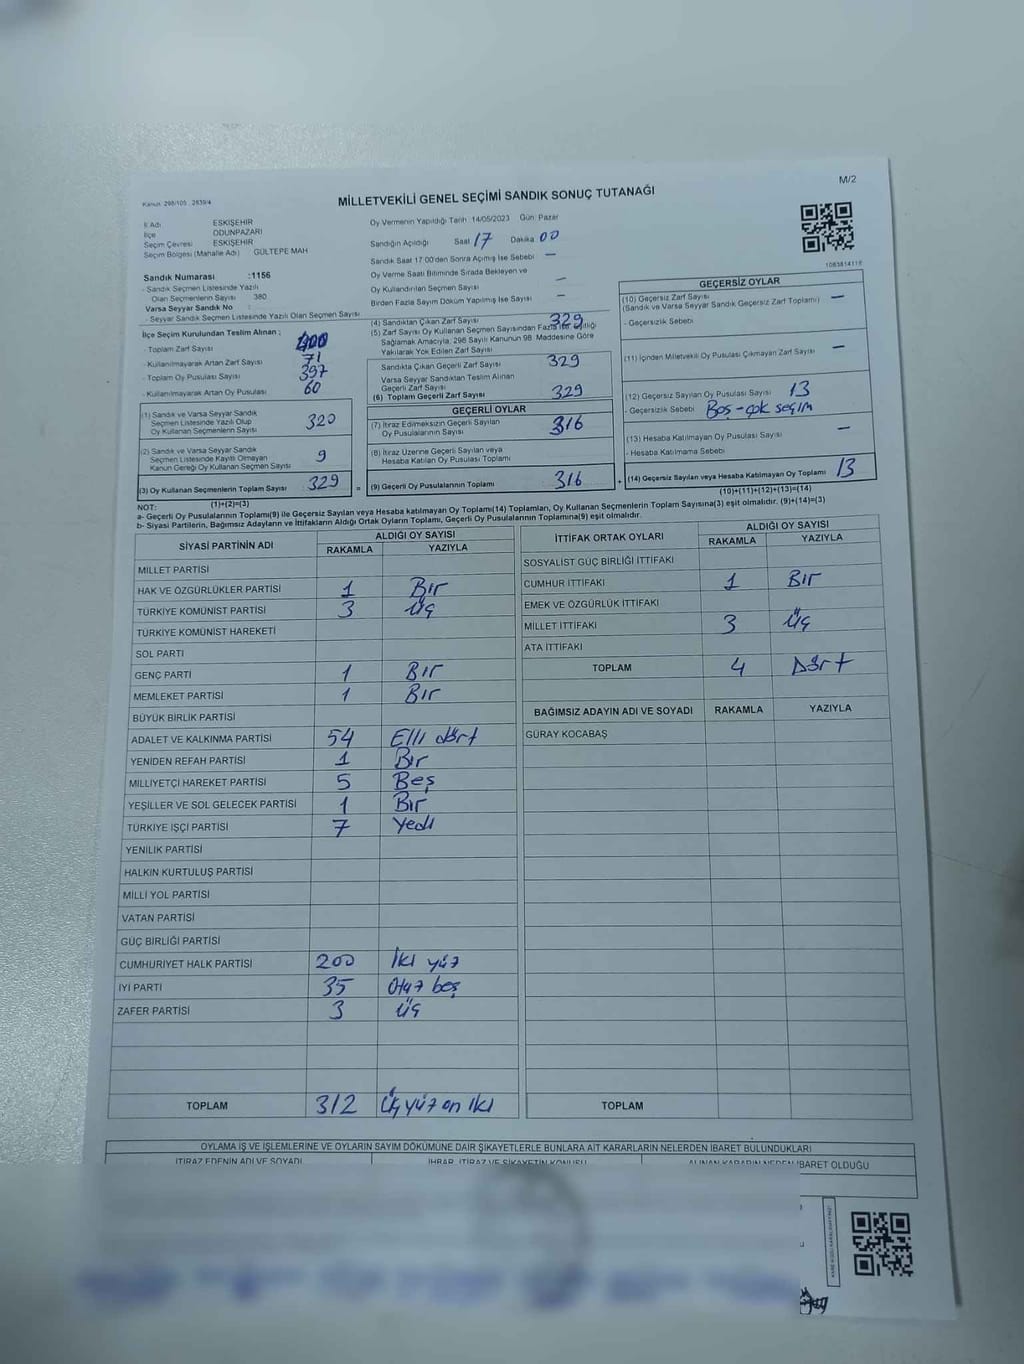 M/2
Kanun 298/105 , 2839/4
MİLLETVEKİLİ GENEL SEÇİMİ SANDIK SONUÇ TUTANAĞI
İl Adı ESKİŞEHİR
İlçe ODUNPAZARI
Seçim Çevresi ESKİŞEHİR
Seçim Bölgesi (Mahalle Adı) GÜLTEPE MAH
Sandık Numarası :1156
- Sandık Seçmen Listesinde Yazılı
Olan Seçmenlerin Sayısı 380
Varsa Seyyar Sandık No :
- Seyyar Sandık Seçmen Listesinde Yazılı Olan Seçmen Sayısı
İlçe Seçim Kurulundan Teslim Alınan :
- Toplam Zarf Sayısı 400
- Kullanılmayarak Artan Zarf Sayısı 71
- Toplam Oy Pusulası Sayısı 397
- Kullanılmayarak Artan Oy Pusulası 60
(1) Sandık ve Varsa Seyyar Sandık
Seçmen Listesinde Yazılı Olup
Oy Kullanan Seçmenlerin Sayısı 320
(2) Sandık ve Varsa Seyyar Sandık
Seçmen Listesinde Kayıtlı Olmayan
Kanun Gereği Oy Kullanan Seçmen Sayısı 9
(3) Oy Kullanan Seçmenlerin Toplam Sayısı 329
(1)+(2)=(3)
Oy Vermenin Yapıldığı Tarih 14/05/2023 Gün Pazar
Sandığın Açıldığı Saat 17 Dakika 00
Sandık Saat 17.00'den Sonra Açılmış İse Sebebi —
Oy Verme Saati Bitiminde Sırada Bekleyen ve
Oy Kullandırılan Seçmen Sayısı —
Birden Fazla Sayım Döküm Yapılmış İse Sayısı —
(4) Sandıktan Çıkan Zarf Sayısı 329
(5) Zarf Sayısı Oy Kullanan Seçmen Sayısından Fazla İse Eşitliği
Sağlamak Amacıyla, 298 Sayılı Kanunun 98. Maddesine Göre
Yakılarak Yok Edilen Zarf Sayısı
Sandıkta Çıkan Geçerli Zarf Sayısı 329
Varsa Seyyar Sandıktan Teslim Alınan
Geçerli Zarf Sayısı
(6) Toplam Geçerli Zarf Sayısı 329
GEÇERLİ OYLAR
(7) İtiraz Edilmeksizin Geçerli Sayılan
Oy Pusulalarının Sayısı 316
(8) İtiraz Üzerine Geçerli Sayılan veya
Hesaba Katılan Oy Pusulası Toplamı
= (9) Geçerli Oy Pusulalarının Toplamı 316 +
1083814118
GEÇERSİZ OYLAR
(10) Geçersiz Zarf Sayısı —
(Sandık ve Varsa Seyyar Sandık Geçersiz Zarf Toplamı)
- Geçersizlik Sebebi
(11) İçinden Milletvekili Oy Pusulası Çıkmayan Zarf Sayısı —
(12) Geçersiz Sayılan Oy Pusulası Sayısı 13
- Geçersizlik Sebebi Boş-çok seçim
(13) Hesaba Katılmayan Oy Pusulası Sayısı —
- Hesaba Katılmama Sebebi
(14) Geçersiz Sayılan veya Hesaba Katılmayan Oy Toplamı 13
(10)+(11)+(12)+(13)=(14)
NOT:
a- Geçerli Oy Pusulaları Toplamı(9) ile Geçersiz Sayılan veya Hesaba katılmayan Oy Toplamı(14) Toplamları, Oy Kullanan Seçmenlerin Toplam Sayısına(3) eşit olmalıdır. (9)+(14)=(3)
b- Siyasi Partilerin, Bağımsız Adayların ve İttifakların Aldığı Ortak Oyların Toplamı, Geçerli Oy Pusulalarının Toplamına(9) eşit olmalıdır.
SİYASİ PARTİNİN ADI ALDIĞI OY SAYISI
RAKAMLA YAZIYLA
MİLLET PARTİSİ
HAK VE ÖZGÜRLÜKLER PARTİSİ 1 Bir
TÜRKİYE KOMÜNİST PARTİSİ 3 Üç
TÜRKİYE KOMÜNİST HAREKETİ
SOL PARTİ
GENÇ PARTİ 1 Bir
MEMLEKET PARTİSİ 1 Bir
BÜYÜK BİRLİK PARTİSİ
ADALET VE KALKINMA PARTİSİ 54 Elli dört
YENİDEN REFAH PARTİSİ 1 Bir
MİLLİYETÇİ HAREKET PARTİSİ 5 Beş
YEŞİLLER VE SOL GELECEK PARTİSİ 1 Bir
TÜRKİYE İŞÇİ PARTİSİ 7 Yedi
YENİLİK PARTİSİ
HALKIN KURTULUŞ PARTİSİ
MİLLİ YOL PARTİSİ
VATAN PARTİSİ
GÜÇ BİRLİĞİ PARTİSİ
CUMHURİYET HALK PARTİSİ 200 İki yüz
İYİ PARTİ 35 Otuz beş
ZAFER PARTİSİ 3 Üç
TOPLAM 312 Üç yüz on iki
İTTİFAK ORTAK OYLARI ALDIĞI OY SAYISI
RAKAMLA YAZIYLA
SOSYALİST GÜÇ BİRLİĞİ İTTİFAKI
CUMHUR İTTİFAKI 1 Bir
EMEK VE ÖZGÜRLÜK İTTİFAKI
MİLLET İTTİFAKI 3 Üç
ATA İTTİFAKI
TOPLAM 4 Dört
BAĞIMSIZ ADAYIN ADI VE SOYADI RAKAMLA YAZIYLA
GÜRAY KOCABAŞ
TOPLAM
OYLAMA İŞ VE İŞLEMLERİNE VE OYLARIN SAYIM DÖKÜMÜNE DAİR ŞİKAYETLERLE BUNLARA AİT KARARLARIN NELERDEN İBARET BULUNDUKLARI
İTİRAZ EDENİN ADI VE SOYADI İHBAR, İTİRAZ VE ŞİKAYETİN KONUSU ALINAN KARARIN NEDEN İBARET OLDUĞU